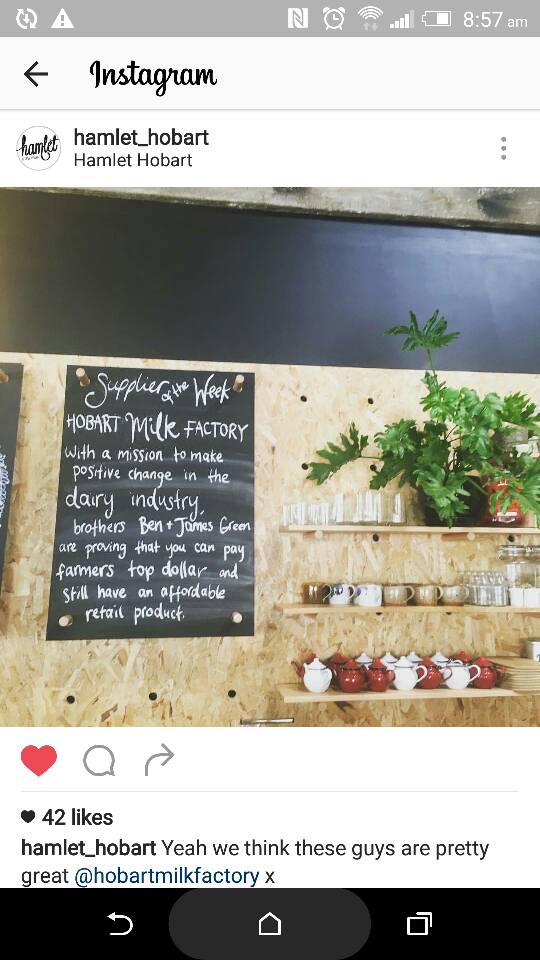 8:57 am
Instagram
hamlet
hamlet_hobart
Hamlet Hobart
Supplier of the Week
HOBART Milk FACTORY
with a mission to make
positive change in the
dairy industry,
brothers Ben + James Green
are proving that you can pay
farmers top dollar and
still have an affordable
retail product.
42 likes
hamlet_hobart Yeah we think these guys are pretty
great @hobartmilkfactory x